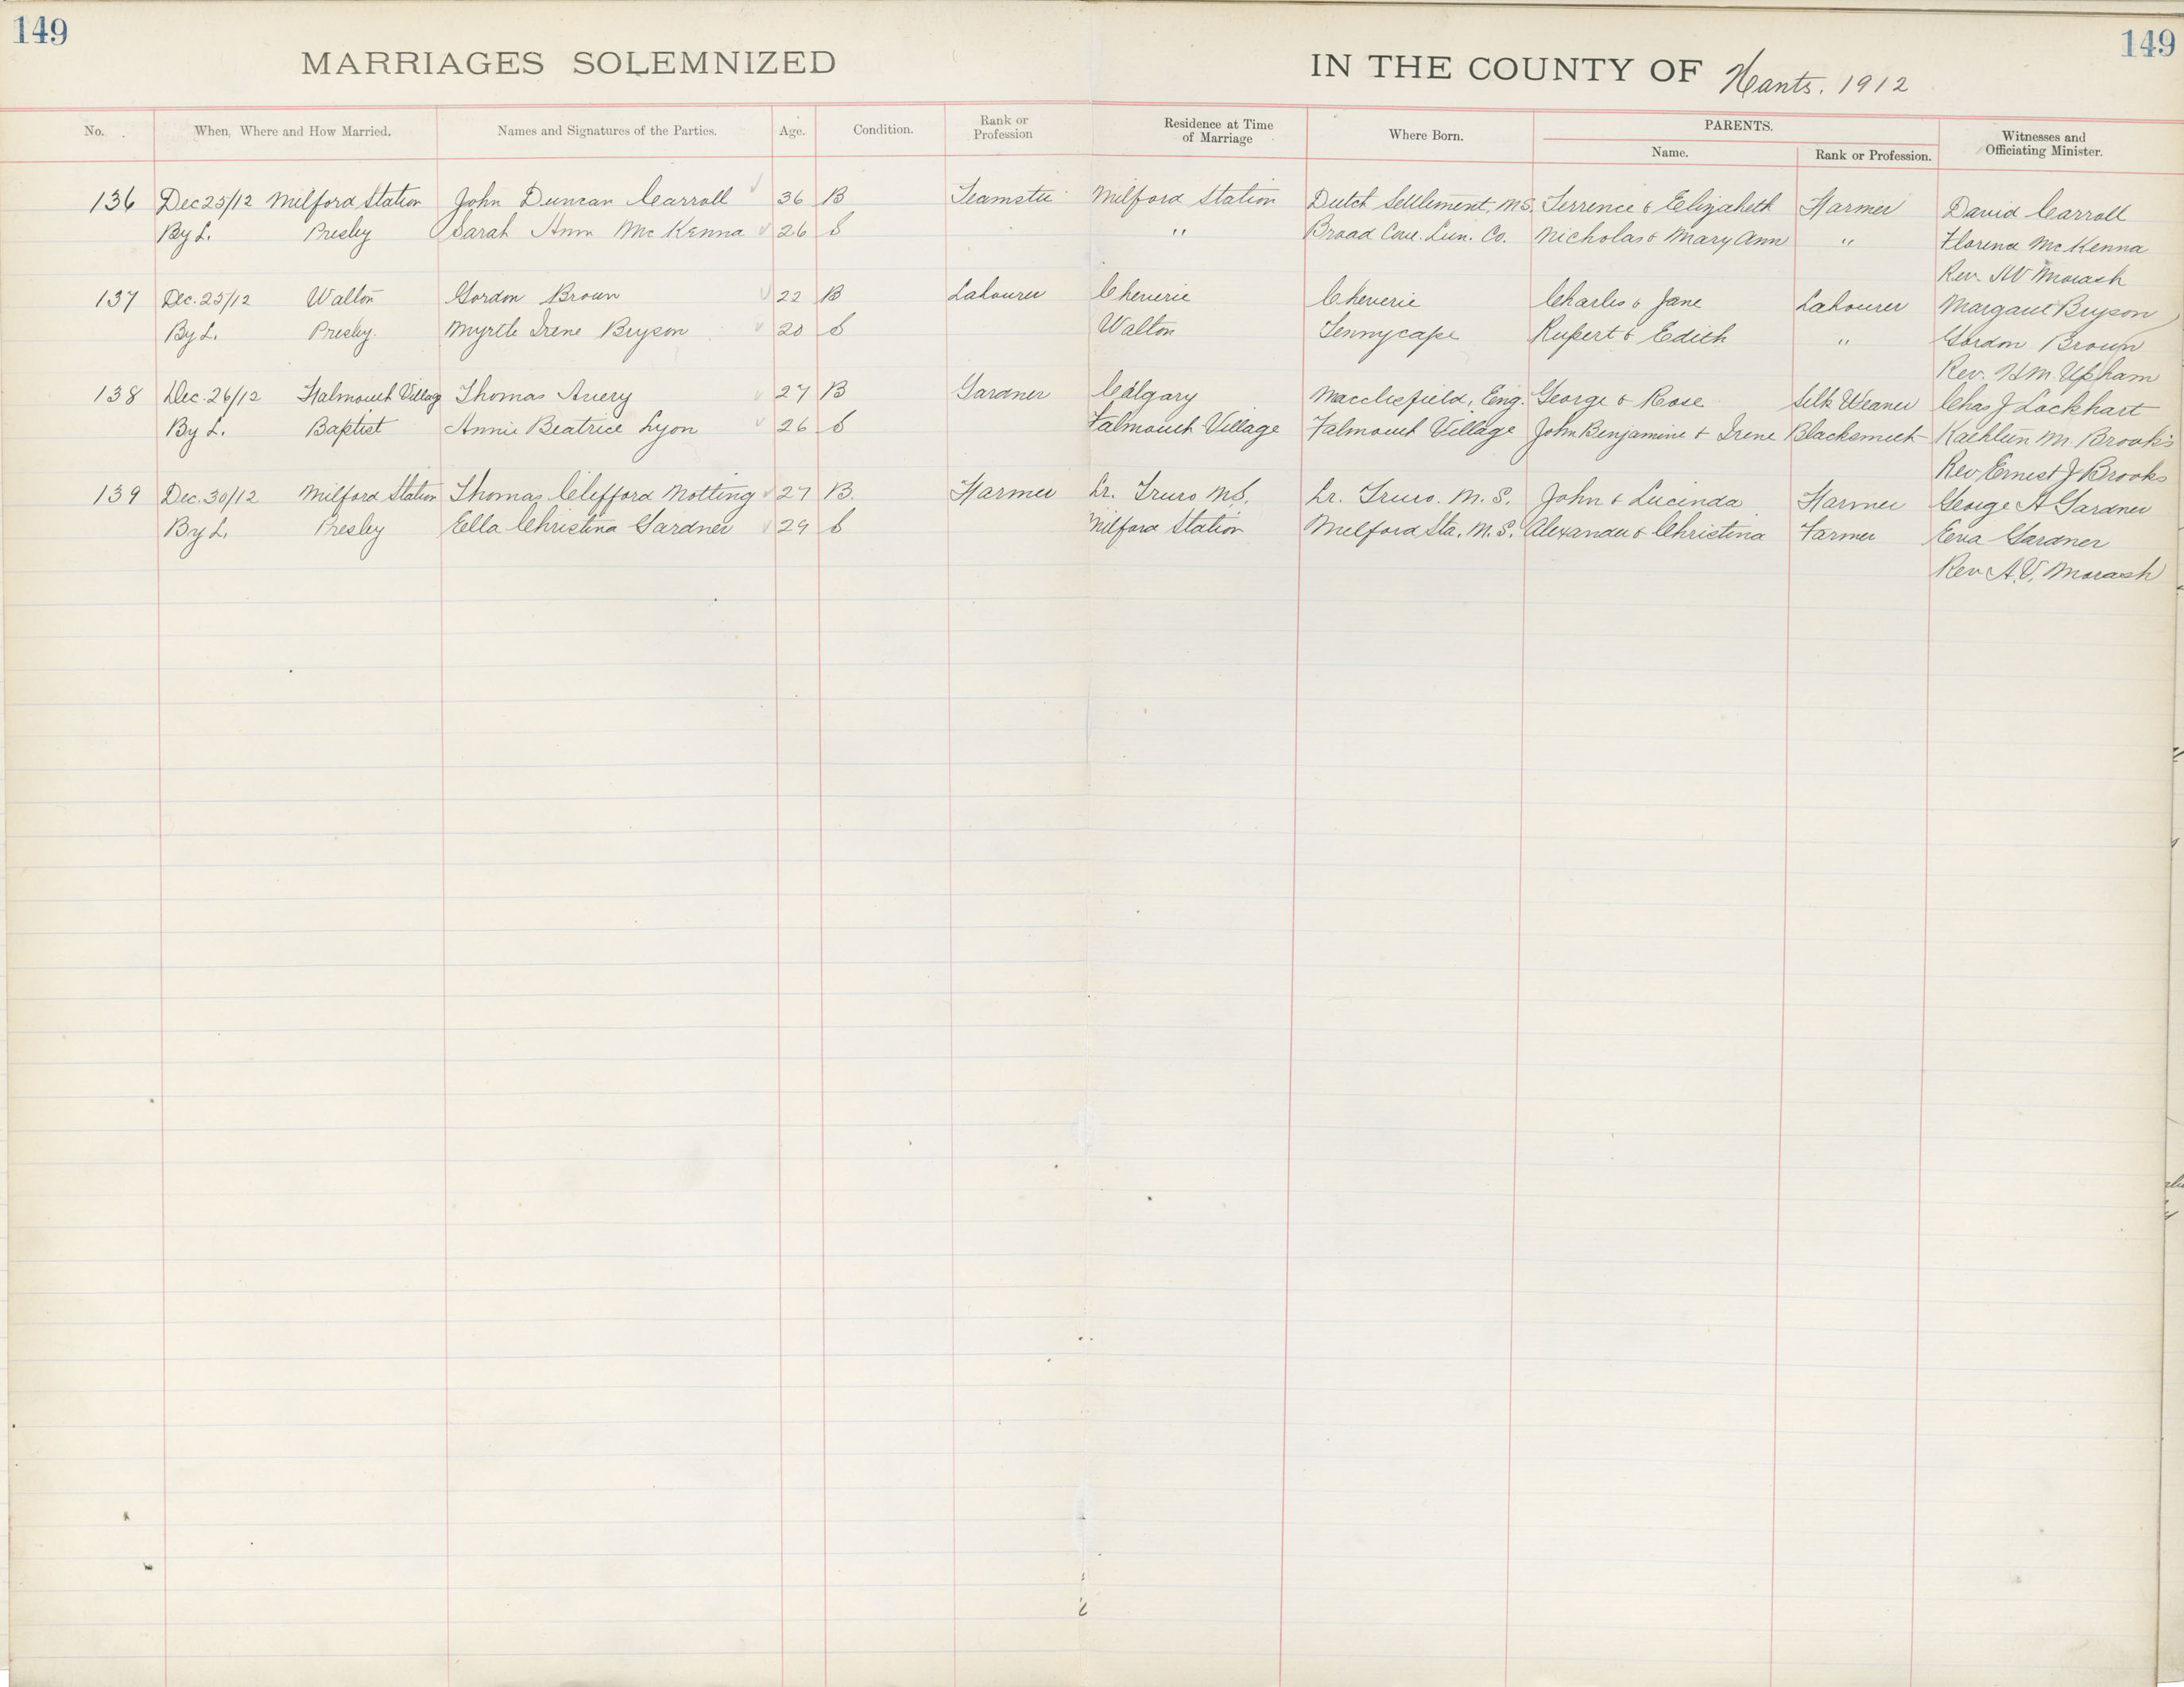 149
149
MARRIAGES SOLEMNIZED IN THE COUNTY OF Hants. 1912
No. When, Where and How Married. Names and Signatures of the Parties. Age. Condition. Rank or Profession Residence at Time of Marriage Where Born. PARENTS. Name. Rank or Profession. Witnesses and Officiating Minister.
136 Dec 25/12 Milford Station John Duncan Carroll 36 B Teamster Milford Station Dutch Settlement, N.S. Terrence & Elizabeth Farmer David Carroll
By L. Presby Sarah Ann McKenna 26 S " Broad Cove. Lun. Co. Nicholas & Mary Ann " Florence McKenna
Rev. AV Morash
137 Dec. 25/12 Walton Gordon Brown 22 B Labourer Cheverie Cheverie Charles & Jane Labourer Margaret Bryson
By L. Presby. Myrtle Irene Bryson 20 S Walton Tennycape Rupert & Edith " Gordon Brown
Rev. H.M. Upham
138 Dec. 26/12 Falmouth Village Thomas Avery 27 B Gardner Calgary Macclesfield, Eng. George & Rose Silk Weaver Chas J Lockhart
By L. Baptist Annie Beatrice Lyon 26 S Falmouth Village Falmouth Village John Benjamine & Irene Blacksmith Kathleen M. Brooks
Rev Ernest J Brooks
139 Dec. 30/12 Milford Station Thomas Clifford Notting 27 B. Farmer Lr. Truro N.S. Lr. Truro. N.S. John & Lucinda Farmer George A Gardner
By L. Presby Ella Christina Gardner 29 S Milford Station Milford Sta. N.S. Alexander & Christina Farmer Eva Gardner
Rev A.V. Morash